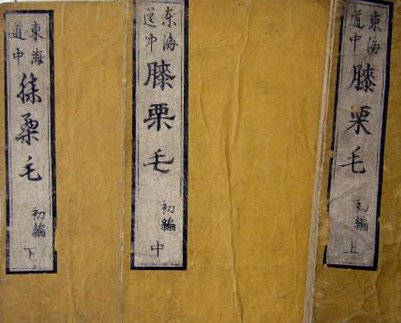 東海
道中
膝栗毛
初編
上
东海
道中
膝栗毛
初編
中
東海
道中
膝栗毛
初編
下